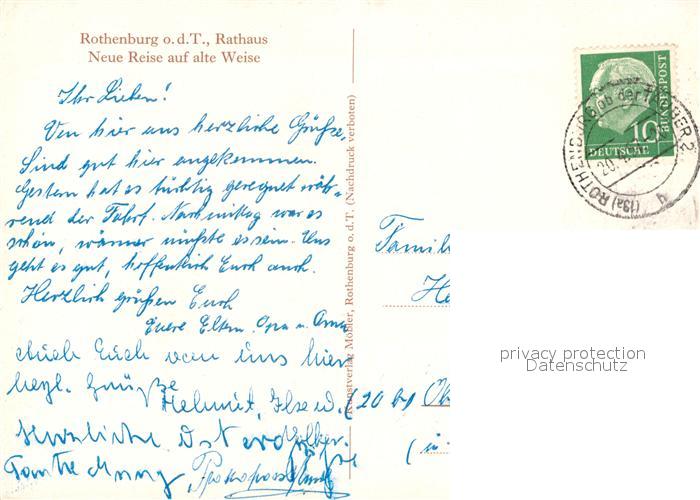 Rothenburg o. d. T., Rathaus
Neue Reise auf alte Weise
Ihr Lieben!
Von hier aus herzliche Grüße,
Sind gut hier angekommen.
Gestern hat es tüchtig geregnet wäh-
rend der Fahrt. Nachmittag war es
schön, wärmer müßte es sein. Uns
geht es gut, hoffentlich Euch auch.
Herzlich grüßen Euch
Euere Eltern Opa u. Oma
Auch Euch von uns hier
herzl. Grüße
Helmut, Ilse u.
Volker.
Herzliche
Tante
Kunstverlag Rothenburg o. d. T. (Nachdruck verboten)
10
DEUTSCHE
BUNDESPOST
(13a) ROTHENBURG ob der TAUBER 2
20.
q
Famili
He
(20 b)
(in
privacy protection
Datenschutz